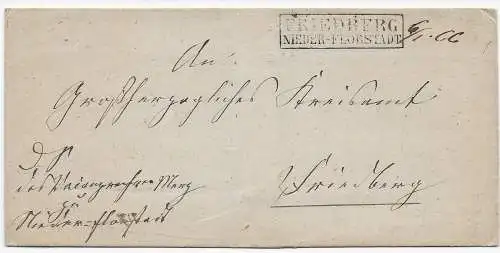 FRIEDBERG
NIEDER-FLORSTADT
An
Großherzogliches Kreisamt
Friedberg
D. S
des
zu
Nieder-Florstadt